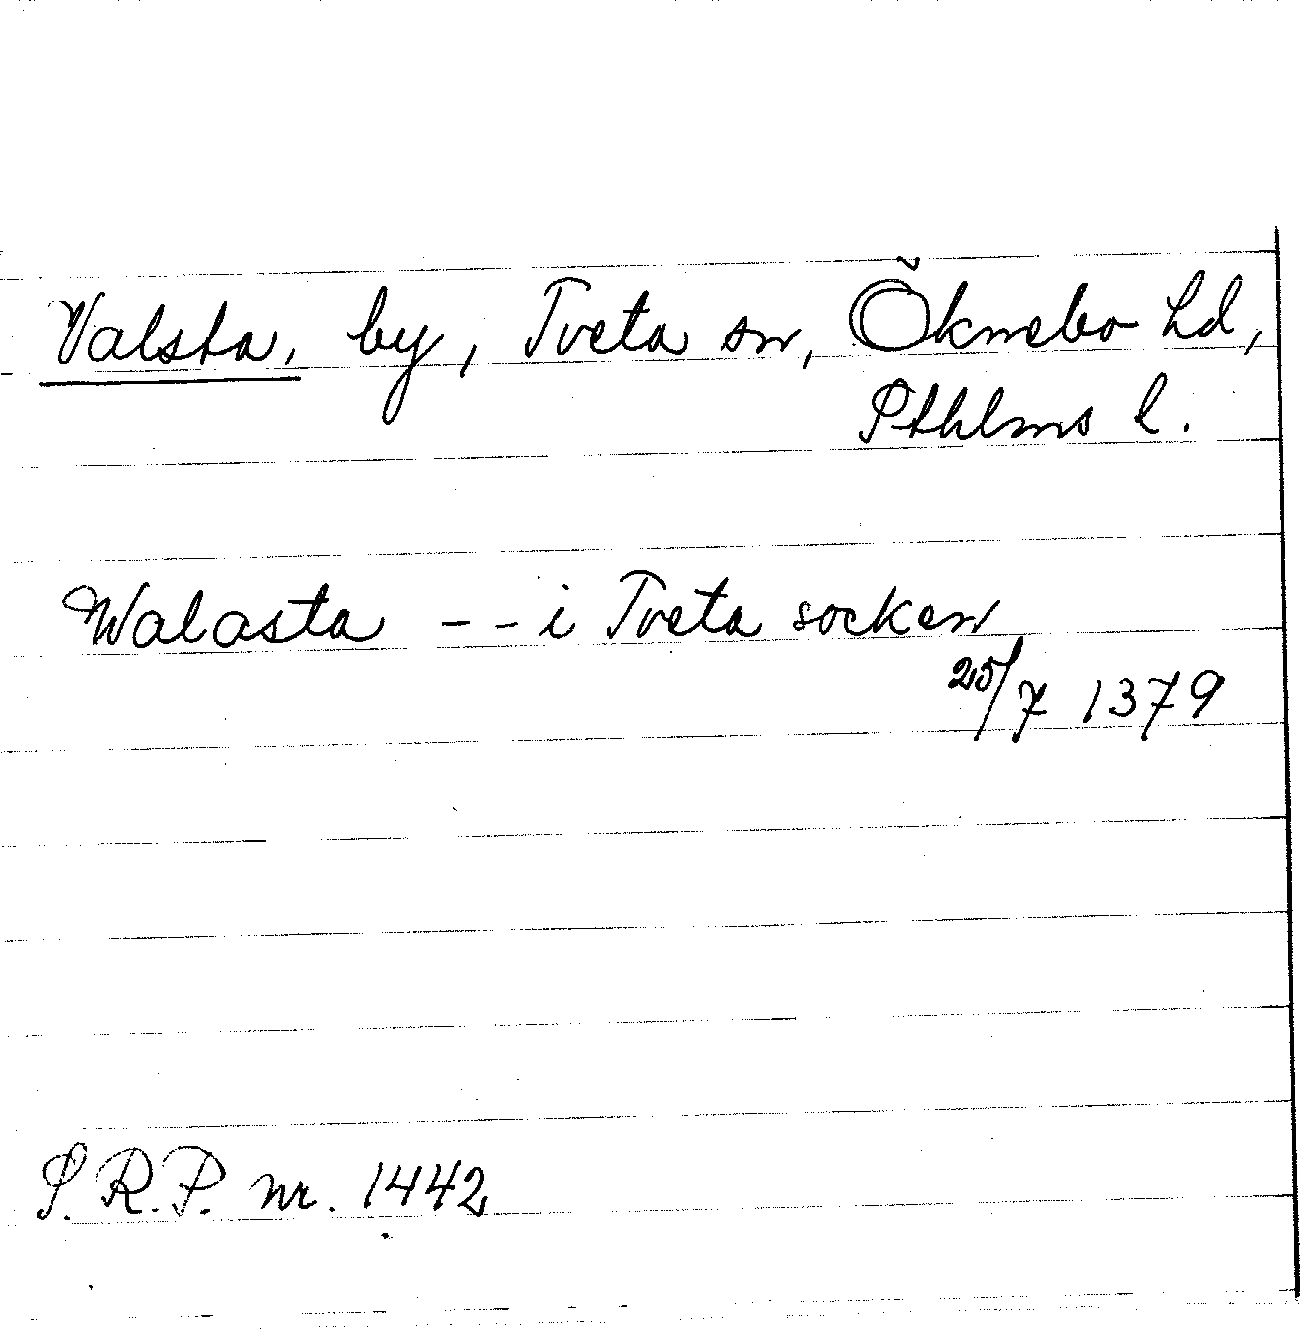 Valsta, by, Tveta sn, Öknebo hd,
Sthlms l.
Walasta -- i Tveta socken
25/7 1379
S.R.P. nr. 1442